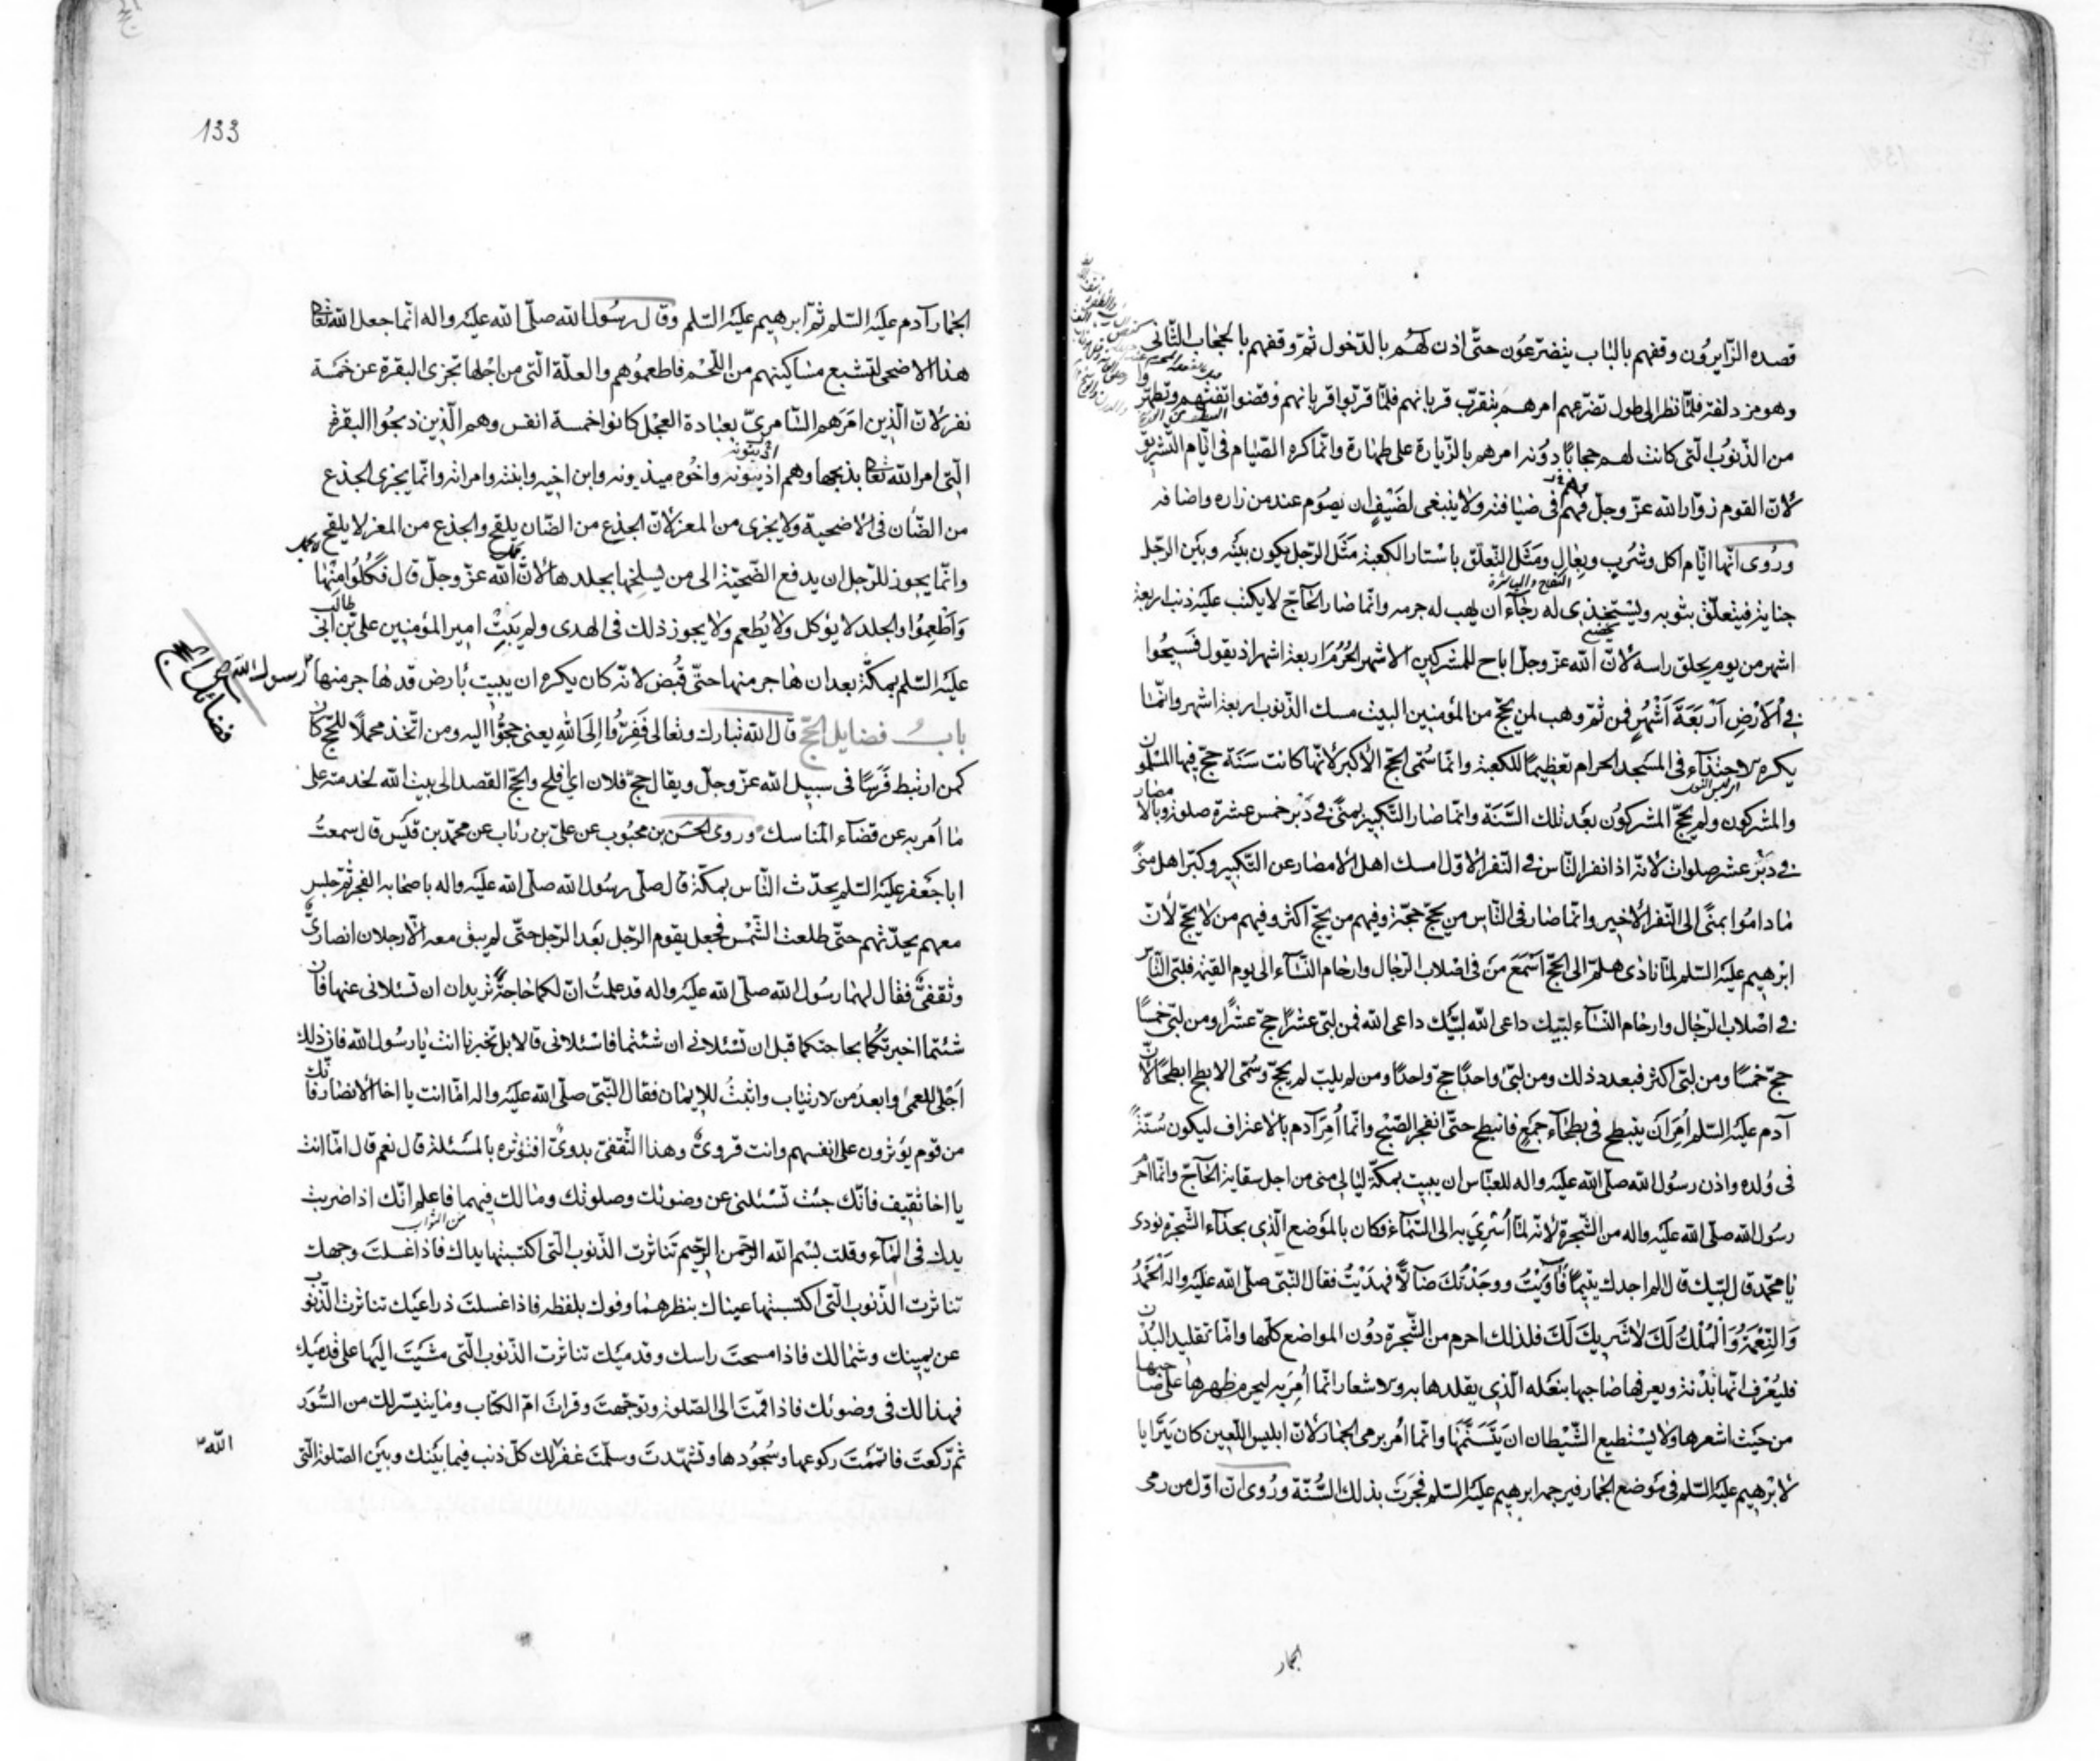 قصده الزّايرُون وقفهم بالباب يتضرّعُون حتّى اذن لهُم بالدّخول ثمّ وقفهم بالحجاب الثّانى
وهو مزدلفة فلمّا نظر الى طول تضرّعهم امرهم بتقرّب قربانهم فلمّا قرّبوا قربانهم وقضوا تفثهم وتطهّروا
من الذّنوُب الّتى كانت لهم حجابًا دوُنه امرهم بالزّيارة على طهارة وانّما كره الصّيام فى ايّام التّشريق
لانّ القوم زوّار الله عزّ وجلّ فهم فى ضيافته ولا ينبغى لضَيْفٍ ان يصوُم عند من زاره واضافه
ورُوى انّها ايّام اكل وشُربٍ وبِعالٍ ومَثَل التّعلّق باسْتار الكعبة مَثَل الرّجل يكون بينَه وبَين الرّجل
جناية فيتعلّق بثوبه ويستخذى له رجآء ان يهب له جرمه وانّما صار الحَاجّ لا يكتب عليه ذنب اربعة
اشهر من يوم يحلق راسه لانّ الله عزّ وجلّ اباح للمشركين الاشهر الحُرُم اربعة اشهر اذ يقول فَسيحُوا
فِى الاَرْضِ اَرْبَعَةَ اَشْهُرٍ فمن ثمّ وهب لمن يحجّ من المؤمنين البيت مسك الذّنوب اربعة اشهر وانّما
يكره الاحتبآء فى المسَجد الحرام تعظيمًا للكعبة وانّما سُمّى الحجّ الأكبر لأنّها كانت سَنَة حجّ فيها المسْلمون
والمشركون ولم يحجّ المشركوُن بعَد تلك السَّنَة وانّما صار التّكبير بمنًى فى دُبْر خمس عشرة صلوة وبالامصار
فى دُبْر عشر صلوات لانّه اذا نفر النّاس فى النّفر الاوّل امسك اهل الامصار عن التّكبير وكبّر اهل منًى
ما دامُوا بمنًى الى النّفر الاخير وانّما صار فى النّاس من يحجّ حجّة وفيهم من يحجّ اكثر وفيهم من لا يحجّ لأنّ
ابرهيم عليَه السّلم لمّا نادى هلمّ الى الحجّ اَسْمَعَ مَن فى اصْلاب الرّجال وارحام النّسَآء الى يوم القيٰمة فلبّى النّاس
فى اصْلاب الرّجال وارحام النّسَآء لبّيك داعى الله لبّيك داعى الله فمن لبّى عشرًا حجّ عشرًا ومن لبّى خمسًا
حجّ خمسًا ومن لبّى اكثر فبعدد ذلك ومن لبّى واحدًا حجّ واحدًا ومن لم يلبّ لم يحجّ وسُمّى الابطح ابطحًا لأنّ
آدم عليَه السّلم اُمِرَ اَن ينبطح فى بطحآء جَمعٍ فانبطح حتّى انفجر الصّبْح وانّما اُمِرَ آدم بالاعتراف ليكون سُنّةً
فى وُلده واذن رسُول الله صلّى الله عليَه واله للعبّاس ان يبيت بمكّة ليالى منى من اجل سقاية الحَاجّ وانّما احْرَم
رسُول الله صلّى الله عليَه واله من الشّجرة لانّه لمّا اُسْرِىَ به الى السّمآء فكان بالموَضع الّذى بحذآء الشّجرة نودى
يا محمّد قال لبّيك قال الم اجدك يتيمًا فَآوَيْتُ ووجَدْتُكَ ضآلًّا فهدَيْتُ فقال النّبىّ صلّى الله عليَه واله اَلْحَمْدُ
وَالنِّعْمَةُ وَالْمُلْكُ لَكَ لاٰشَريكَ لَكَ فلذلك احرم من الشّجرة دوُن المواضع كلّها وامّا تقليد البُدْن
فليُعْرَف انّها بَدْنة ويعرفها صاحبها بنعَله الّذى يقلدها به والاشعار انّما اُمِرَ به ليحرم ظهرها على صاحبها
من حيَث اشعرها ولا يسْتطيع الشّيْطان ان يَتَسَنَّمَها وانّما اُمر برمى الجمار لانّ ابليس اللّعين كان يَتَرَايا
لابْرهيم عليَه السّلم فى موَضع الجمار فيرجمه ابرهيم عليَه السّلم فجرَت بذلك السُّنّة ورُوى انّ اوّل من رمى
الجمار
133
الجمار آدم عليَه السّلم ثمّ ابرهيم عليَه السّلم وقال رسُول الله صلّى الله عليَه واله انّما جعل الله تعالى
هذا الاضحى لتشبع مساكينهم من اللّحْم فاطعموُهم والعلّة الّتى من اجْلها تجزى البقرة عن خمَسة
نفر لانّ الّذين امَرَهم السّامرىّ بعبادة العجْل كانوا خمسة انفس وهم الّذين ذبحُوا البقرة
الّتى امر الله تعالى بذبحها وهم اذينونه واخوُه ميذونه وابن اخيه وابنته وامراته وانّما يجزى الجذع
من الضّأن فى الاضحية ولا يجزى من المعز لانّ الجذع من الضّان يلقح والجذع من المعز لا يلقح
وانّما يجوز للرّجل ان يدفع الضّحيّة الى من يسلخها بجلدها لانّ الله عزّ وجلّ قال فَكُلُوا مِنْها
وَاَطْعِمُوا والجلد لا يؤكل ولا يُطعم ولا يجوز ذلك فى الهدى ولم يَبِتْ امير المؤمنين على بن ابى طالب
عليَه السّلم بمكّة بعد ان هاجر منها حتّى قُبض لانّه كان يكره ان يبيت بأرض قد هاجر منها رسول الله ص
فضائل الحج
بابُ فضايل الحجّ قال الله تبارك وتعالى فَفِرّوُا اِلَى اللهِ يعنى حجّوُا اليه ومن اتّخذ محملًا للحجّ كان
كمن ارتبط فَرَسًا فى سبيل الله عزّ وجلّ ويقال حجّ فلان اى افلح والحجّ القصد الى بيت الله لخدمته على
ما امر به عن قضآء المناسك وروى الحسَن بن محبُوب عن علىّ بن رئاب عن محمّد بن قيَس قال سمعتُ
ابا جَعفر عليَه السّلم يحدّث النّاس بمكّة قال صلّى رسُول الله صلّى الله عليَه واله باصحابه الفجر ثمّ جلس
معهم يحدّثهم حتّى طلعت الشّمْس فجعل يقوم الرّجل بعَد الرّجل حتّى لم يبق معه الّا رجلان انصارىٌّ
وثقفىٌّ فقال لهما رسُول الله صلّى الله عليَه واله قد علمتُ انّ لكما حاجةً تريدان ان تسئلانى عنها فان
شئتما اخبرتكُما بحاجتكما قبل ان تسْئلانى وان شئتما فاسْئلانى قالا بل تخبرنا انت يا رسُول الله فان ذلك
اَجْلى للعمى وابعدُ من الارتياب واثبتُ للايمان فقال النّبىّ صلّى الله عليَه واله امّا انت يا اخا الانصار فانّك
من قوم يؤثرون على انفسهم وانت قروىٌّ وهذا الثّقفىّ بدوىٌّ افتؤثره بالمسَئلة قال نعم قال امّا انت
يا اخا ثقيف فانّك جئت تسْئلنى عن وضوئك وصلوتك وما لك فيهما فاعلم انّك اذا ضربت
من الثواب
يدك فى المآء وقلت بسْم الله الرّحمن الرّحيم تناثرت الذّنوب الّتى اكتسبتها يداك فاذا غسلتَ وجهك
تناثرت الذّنوب الّتى اكتسبتها عيناك بنظرهما وفوك بلفظه فاذا غسلتَ ذراعيَك تناثرت الذّنوب
عن يمينك وشمالك فاذا مسحتَ راسك وقدميَك تناثرت الذّنوب الّتى مشَيَتَ اليها على قدميَك
فهذا لك فى وضوئك فاذا قمتَ الى الصّلوة وتوجّهتَ وقراتَ امّ الكتاب وما يتيسّر لك من السُّوَر
ثمّ ركعتَ فاتممْتَ ركوعها وسُجُودها وتشهّدتَ وسلّمتَ غفر لك كلّ ذنب فيما بيَنك وبيَن الصّلوة الّتى
الله